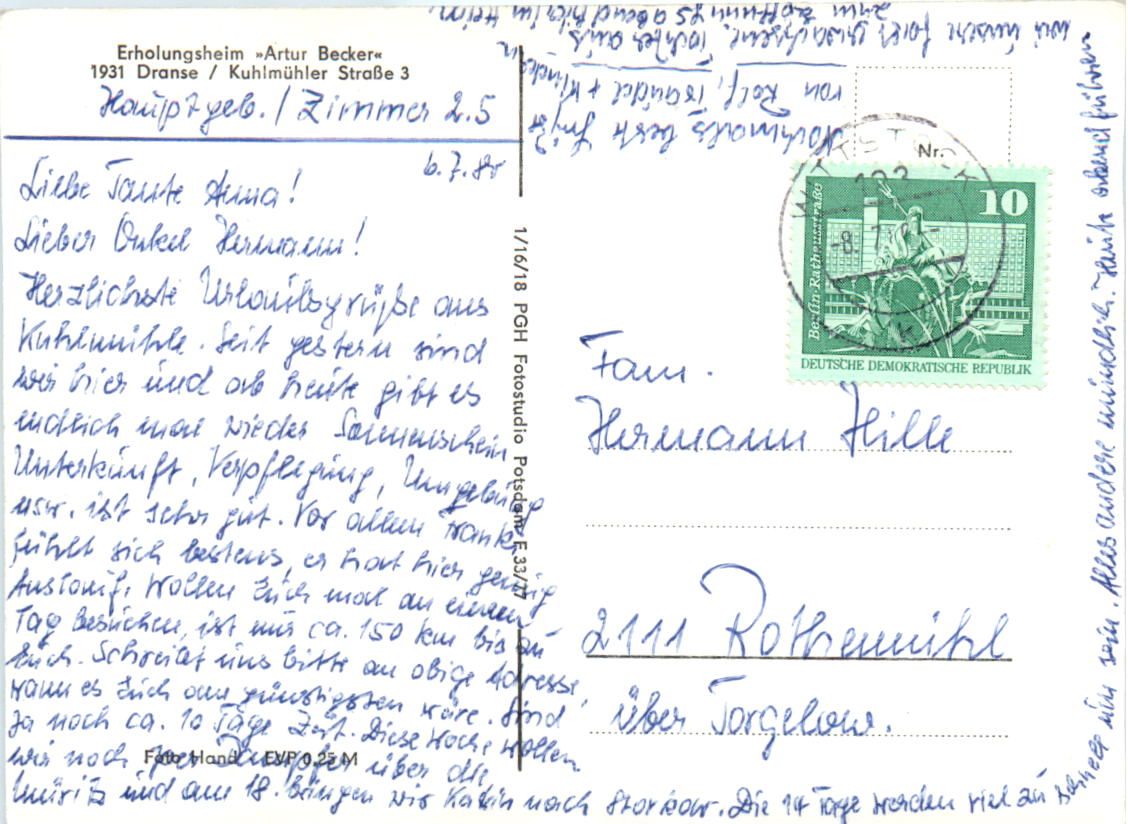 Erholungsheim »Artur Becker«
1931 Dranse / Kuhlmühler Straße 3
Hauptgeb. / Zimmer 25
6.7.80
Liebe Tante Anna!
Lieber Onkel Hermann!
Herzlichste Urlaubsgrüße aus
Kuhlmühle. Seit gestern sind
wir hier und ab heute gibt es
endlich mal wieder Sonnenschein
Unterkunft, Verpflegung, Umgebung
usw. ist sehr gut. Vor allem Frank
fühlt sich bestens, er hat hier genug
Auslauf. Wollen Euch mal an einem
Tag besuchen, ist nur ca. 150 km bis zu
Euch. Schreibt uns bitte an obige Adresse,
wann es Euch am günstigsten wäre. Sind
ja noch ca. 10 Tage Zeit. Diese Woche wollen
wir noch per Dampfer über die
Müritz und am 18. bringen wir Katrin nach Storkow. Die 14 Tage werden viel zu
schnell um sein. Alles andere mündlich. Heute abend führen
wir unsere fast erwachsene Tochter aus
zum abend hier im Heim.
Nochmals beste Grüße
von Rolf, + Kindern
Foto Handy EVP 0,25 M
1/16/18 PGH Fotostudio Potsdam F 33/77
Nr.
WITTSTOCK
193
-8. 7.
k
10
Berlin-Rathausstraße
DEUTSCHE DEMOKRATISCHE REPUBLIK
Fam.
Hermann Hille
2111 Rothemühl
über Torgelow.